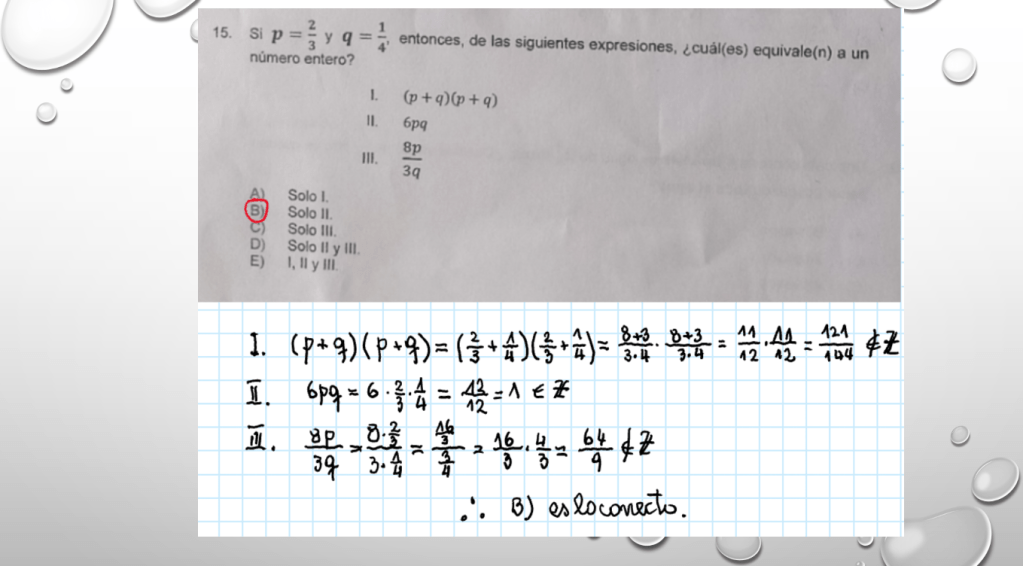 15. Si p = 2/3 y q = 1/4, entonces, de las siguientes expresiones, ¿cuál(es) equivale(n) a un
número entero?
I. (p + q)(p + q)
II. 6pq
III. 8p/3q
A) Solo I.
B) Solo II.
C) Solo III.
D) Solo II y III.
E) I, II y III.
I. (p+q)(p+q) = (2/3 + 1/4)(2/3 + 1/4) = 8+3/3·4 · 8+3/3·4 = 11/12 · 11/12 = 121/144 ∉ Z
II. 6pq = 6 · 2/3 · 1/4 = 12/12 = 1 ∈ Z
III. 8p/3q = 8·2/3 / 3·1/4 = 16/3 / 3/4 = 16/3 · 4/3 = 64/9 ∉ Z
∴ B) es lo correcto.